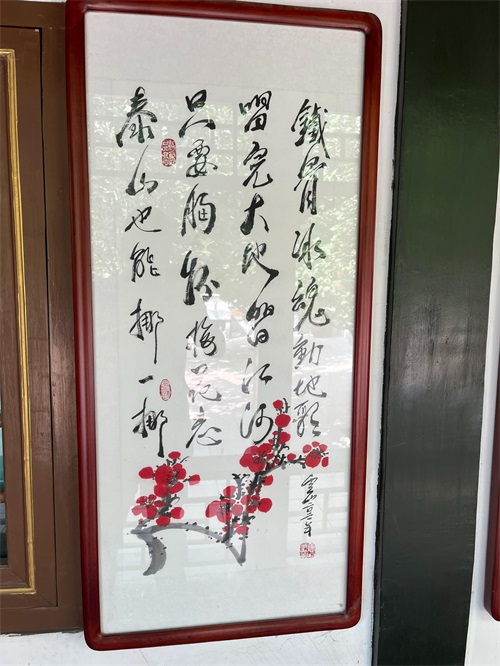 鐵骨冰魂動地歌
唱亮大地江河
只要胸梅花志
泰山也能挪一挪